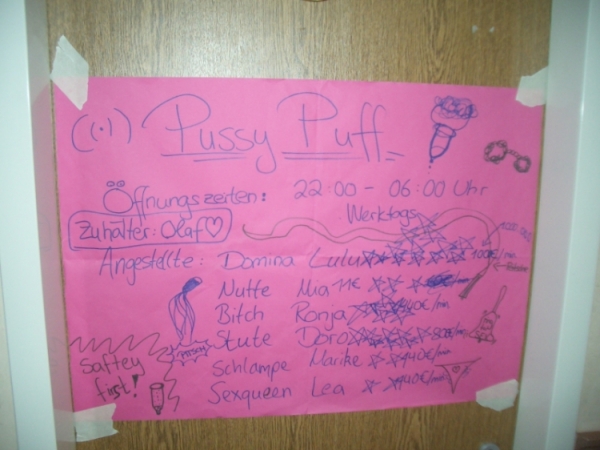 Pussy Puff
Öffnungszeiten: 22:00 - 06:00 Uhr
Werktags
Zuhälter: Olaf
Angestellte: Domina Lulu 100€/min
Nutte Mia 11€
Bitch Ronja 140€/min
PITSCH Stute Doro 80€/min
Schlampe Marike 140€/min
Sexqueen Lea 140€/min
Saftey
first!